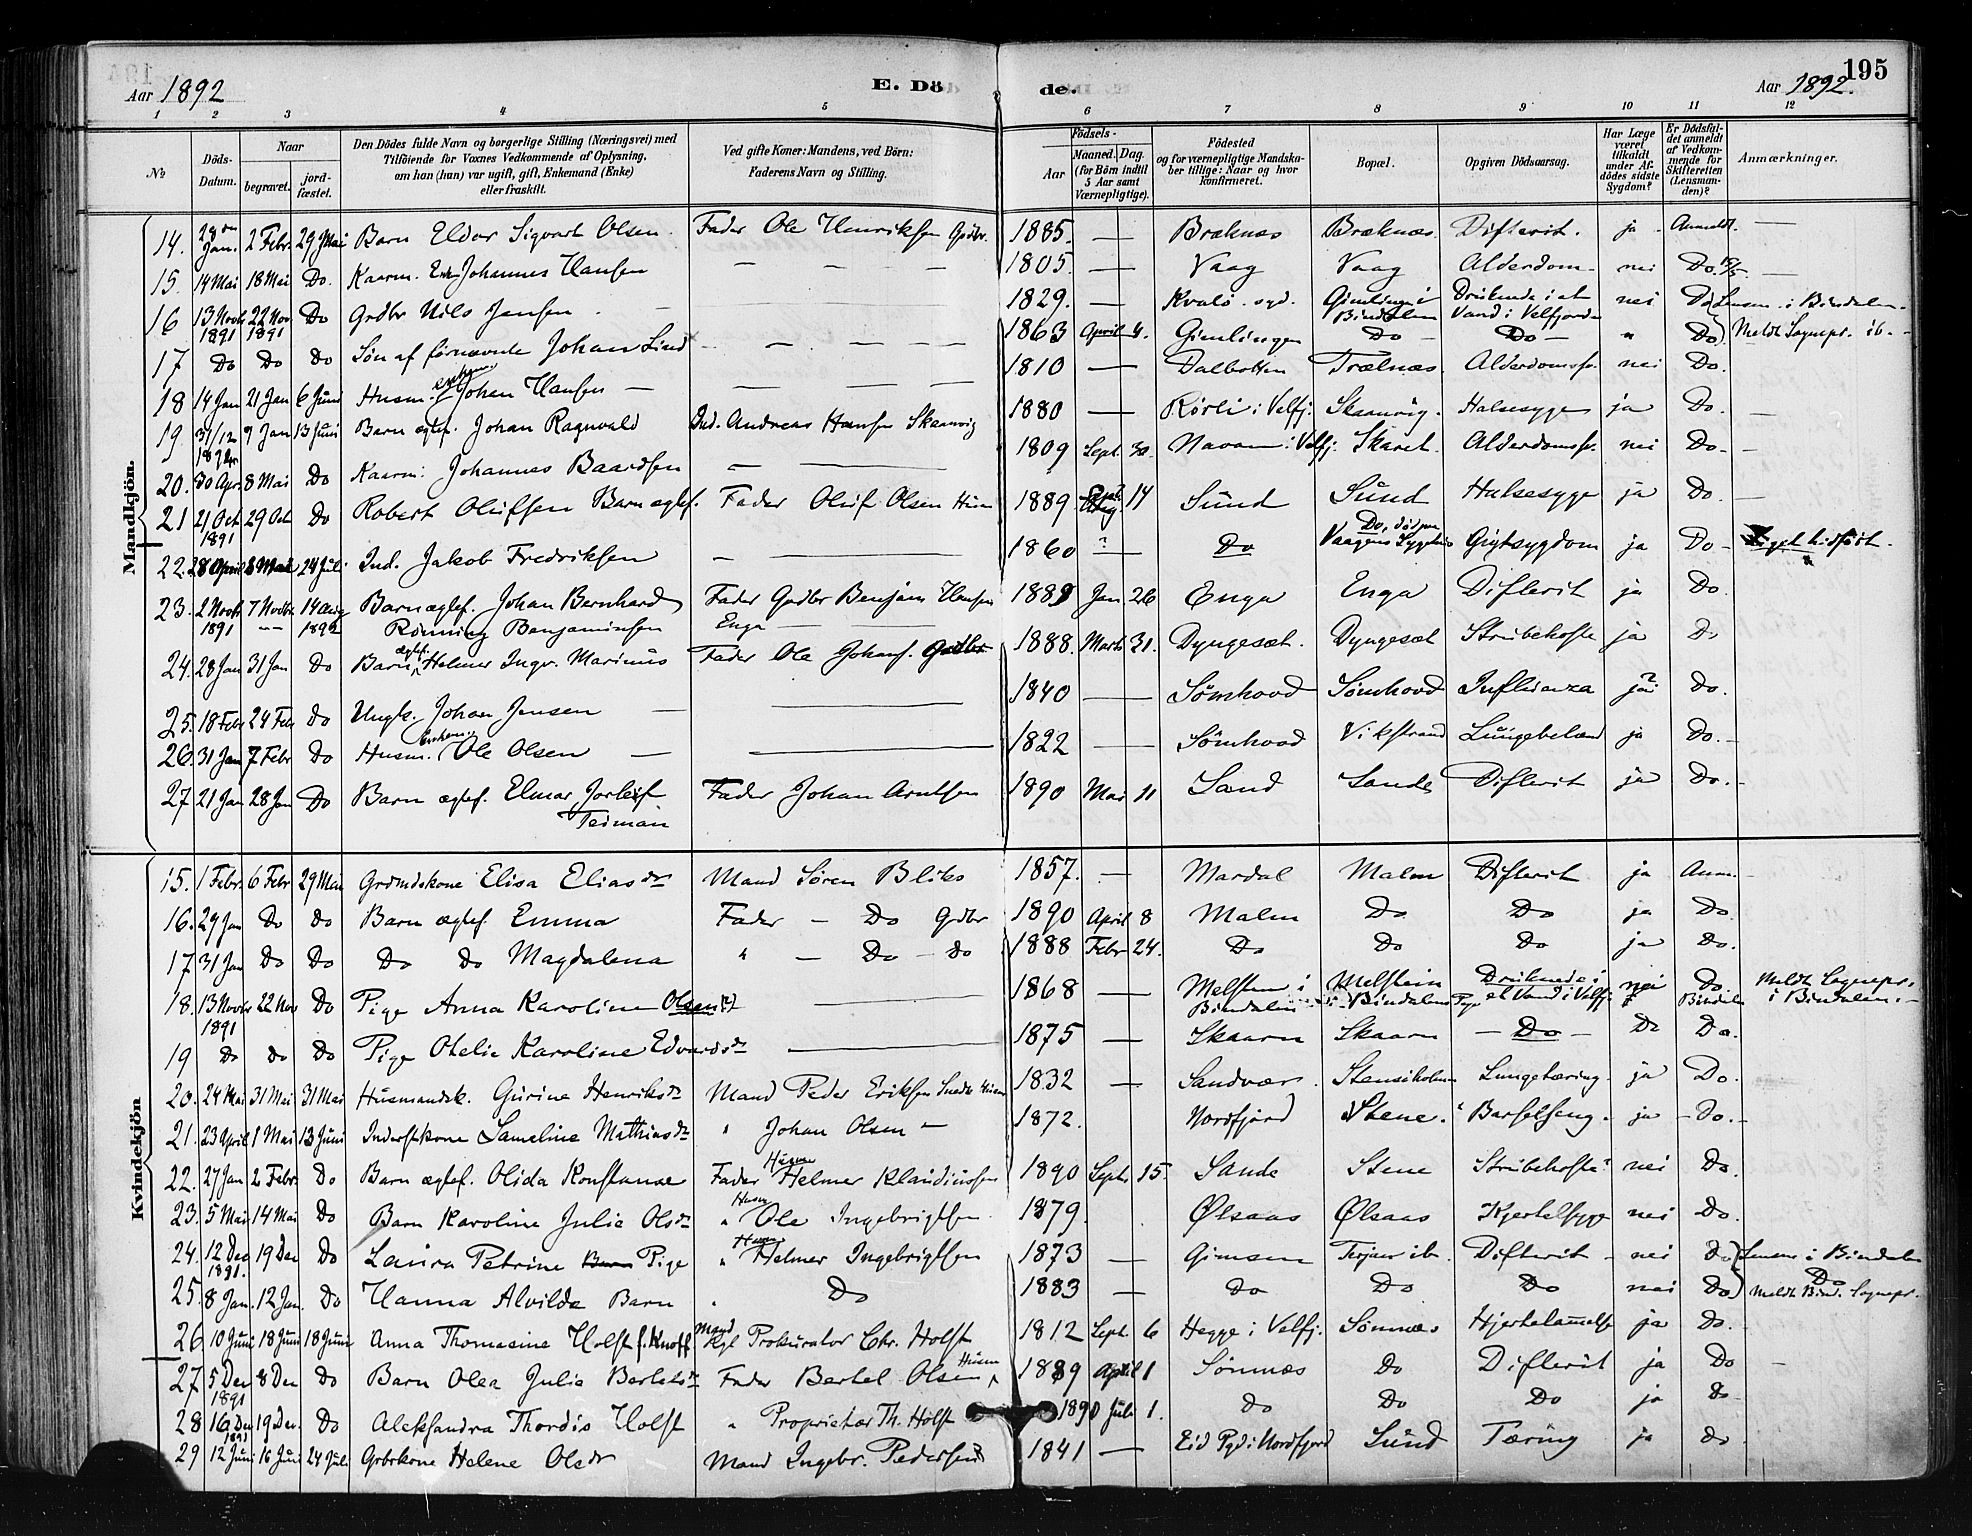 195
Aar 1892
E. Dö de.
Aar 1892.
1 2 3 4 5 6 7 8 9 10 11 12
No
Döds-Datum.
Naar
begravet.
jord-fæstet.
Den Dödes fulde Navn og borgerlige Stilling (Næringsvei) med
Tilföiende for Voxnes Vedkommende af Oplysning,
om han (hun) var ugift, gift, Enkemand (Enke)
eller fraskilt.
Ved gifte Koner: Mandens, ved Börn:
Faderens Navn og Stilling.
Födsels-
Aar
Maaned. Dag.
(for Börn indtil
5 Aar samt
Værnepligtige).
Födested
og for værnepligtige Mandska-
ber tillige: Naar og hvor
konfirmeret.
Bopæl.
Opgiven Dödsaarsag.
Har Læge
været
tilkaldt
under Af-
dödes sidste
Sygdom?
Er Dödsfal-
det anmeldt
af Vedkom-
mende for
Skifteretten
(Lensman-
den)?
Anmærkninger.
Mandkjön.
14. 28de Jan. 2 Febr. 29 Mai Barn Eldor Sigvart Olsen. Fader Ole Henriksen Gdbr. 1885. — Bræknæs Bræknæs. Difterit. ja Anmeldt. —
15. 14 Mai 18 Mai Do. Kaarm. Enk. Johannes Hansen — 1805. — Vaag Vaag Alderdom. nei Do. 15/5 —
16 13 Novbr 1891 22 Nov 1891 Do Grdbr Nils Jensen — 1829. — Kvalö. syd. Gimlinge i Bindalen Druknede i et Vand i Velfjorden nei Do Lensm. i Bindalen.
17 Do Do Do Søn af førnævnte Johan Lind — 1863 April 4. Gimlingen Do Do " Do Meldt Sognepr. ib.
18 14 Jan 21 Jan 6 Juni Husm. enkem. Johan Hansen — 1810 — Dalbotten Trælnæs. Alderdomssv. nei Do.
19 31/12 1891 9 Jan 13 Juni Barn ægtef. Johan Ragnvald Ind. Andreas Hansen Skaanvig 1880 — Rörli i Velfj. Skaanvig. Halsesyge ja Do. —
20. 30 Apr. 8 Mai Do Kaarm: Johannes Baardsen — 1809 Sept. 30. Navan i Velfj. Skaret. Alderdomssv. nei Do. —
21 21 Oct 1891 29 Oct Do Robert Olufsen Barn ægtef. Fader Oluf Olsen Husm 1889 Sept 14 Sund Sund Halsesyge ja Do. —
22. 28 April 8 Mai 24 Juli Ind. Jakob Fredriksen — 1860 ? Do Do, död paa Vaagens Sygehus Gigtsygdom ja Do
23. 2 Novb 1891 7 Novbr — 14 Aug 1892 Barn ægtef. Johan Bernhard Rönning Benjaminsen Fader Gdbr Benjam Hansen Enga 1889 Jan 26 Enga Enga Difterit ja Do
24. 28 Jan 31 Jan Do Barn ægtef. Helmer Ingv. Marinus Fader Ole Johans. Gdbr 1888. Marts 31. Dyngesæt. Dyngesæt Strubehoste ja Do
25. 18 Febr 24 Feb Do Ungk. Johan Jensen — 1840 — Sömhovd Sömhovd Influenza ja? Do.
26. 31 Jan 7 Febr Do Husm. Enkem. Ole Olsen — 1822 — Sömhovd Vikstrand Lungebetænd ja Do. —
27 21 Jan 28 Jan Do Barn ægtef. Elmar Jorleif Teiman Fader Johan Arntsen 1890 Mai 11 Sand Sande Difterit ja Do. —
Kvindekjön
15. 1 Febr. 6 Febr 29 Mai Grdmdskone Elisa Eliasdr Mand Sören Bliks 1857. — Mardal Malm Difterit ja Anm.
16. 29 Jan Do Do Barn ægtef. Emma Fader — Do Grdbr 1890 April 8 Malm Do Do ja Do.
17 31 Jan Do Do Do Do Magdalena " — Do — Do 1888 Febr 24. Do Do Do ja Do.
18. 13 Novbr 1891 22 Nov Do Pige Anna Karoline Olsen(?) — 1868 — Melsten i Bindalen Melstein i Bindalens Pgj. Druknede i et Vand i Velfj. nei Do Bindalen Meldt Sognepr. i Bindalen. —
19 Do Do Do Pige Otelie Karoline Edvardsdr — 1875 — Skaarn Skaarn — Do — Do Do.
20. 24 Mai 31 Mai 31 Mai Husmandsk. Gurine Henriksdr Mand Peder Eriksen Husm 1832 — Sandvær. Stensiholmen Lungetæring. ja Do.
21. 23 April 1 Mai 13 Juni Inderstkone Lameline Mathiasdr " Johan Olsen — 1872. Nordfjord Stene. Barselseng. ja — Do. —
22. 27 Jan 2 Febr. Do Barn ægtef. Olida Konstanse Fader Husm Helmer Klaudiussen 1890 Sept. 15. Sande Stene Strubehoste? nei Do.
23. 5 Mai 14 Mai Do Barn Karoline Julie Olsdr " Husm Ole Ingebrigtsen 1879. Ølsaas Ølsaas Kjertelsyge nei Do.
24. 12 Dec 1891. 19 Dec Do Laura Petrine Barn Pige " Husm Helmer Ingebrigtsen 1873 — Gimsen Terjær ib. Difterit — nei Do Lensm i Bindalen
25. 8 Jan. 12 Jan. Do Hanna Alvilde Barn " Do 1883 — Do Do Do nei Do Do Meldt Bind. Sognepr.
26 10 Juni 18 Juni 18 Juni Anna Thomasine Holst f. Knoff Mand Kgl Prokurator Chr. Holst 1812 Sept. 6 Hegge i Velfj. Sömnæs Hjertelammelse ja Do.
27 5 Dec 1891 8 Dec Do Barn Olea Julie Bertelsdr Fader Bertel Olsen Husm 1889 April 1 Sömnæs Do Difterit ja Do —
28 16 Dec 1891 19 Dec. Do Aleksandra Thordis Holst " Proprietær Th. Holst 1890 Juli 1. Do Do Do ja Do
29 12 Juni 16 Juni 24 Juli Grbrkone Helene Olsdr Mand Ingebr. Pedersen 1841 — Eid Pgd i Nordfjord Sund Tæring ja Do